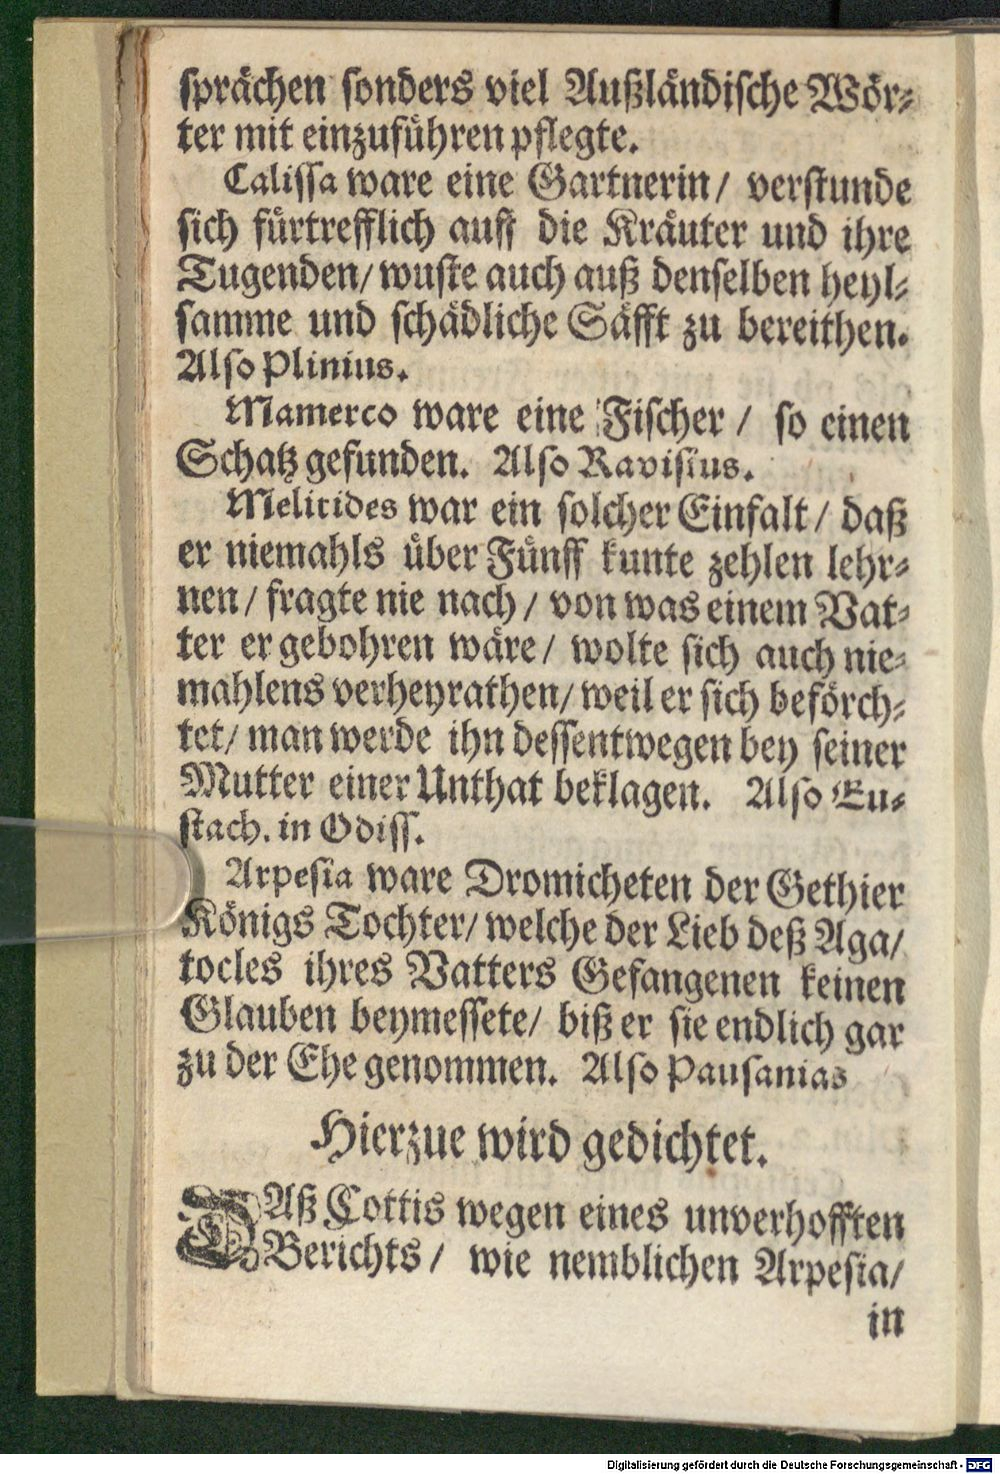 sprächen sonders viel Außländische Wör-
ter mit einzuführen pflegte.
Calissa ware eine Gartnerin/ verstunde
sich fürtrefflich auff die Kräuter und ihre
Tugenden/ wuste auch auß denselben heyl-
samme und schädliche Säfft zu bereithen.
Also Plinius.
Mamerco ware eine Fischer / so einen
Schatz gefunden. Also Ravisius.
Melitides war ein solcher Einfalt / daß
er niemahls über Fünff kunte zehlen lehr-
nen / fragte nie nach / von was einem Vat-
ter er gebohren wäre / wolte sich auch nie-
mahlens verheyrathen/ weil er sich beförch-
tet/ man werde ihn dessentwegen bey seiner
Mutter einer Unthat beklagen. Also Eu-
stach. in Odiss.
Arpesia ware Dromicheten der Gethier
Königs Tochter/ welche der Lieb deß Aga/
tocles ihres Vatters Gefangenen keinen
Glauben beymessete/ biß er sie endlich gar
zu der Ehe genommen. Also Pausanias
Hierzue wird gedichtet.
DAß Cottis wegen eines unverhofften
Berichts / wie nemblichen Arpesia/
in
Digitalisierung gefördert durch die Deutsche Forschungsgemeinschaft - DFG